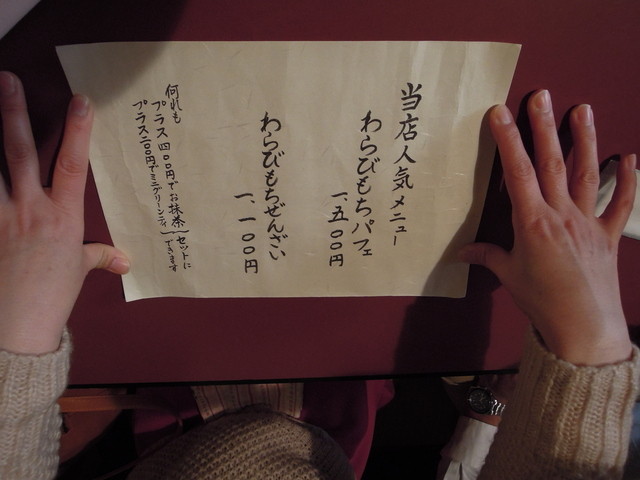 当店人気メニュー
わらびもちパフェ
一、五〇〇円
わらびもちぜんざい
一、一〇〇円
何れも
プラス四〇〇円でお抹茶
プラス二〇〇円でミニグリーンティ
セットに
できます